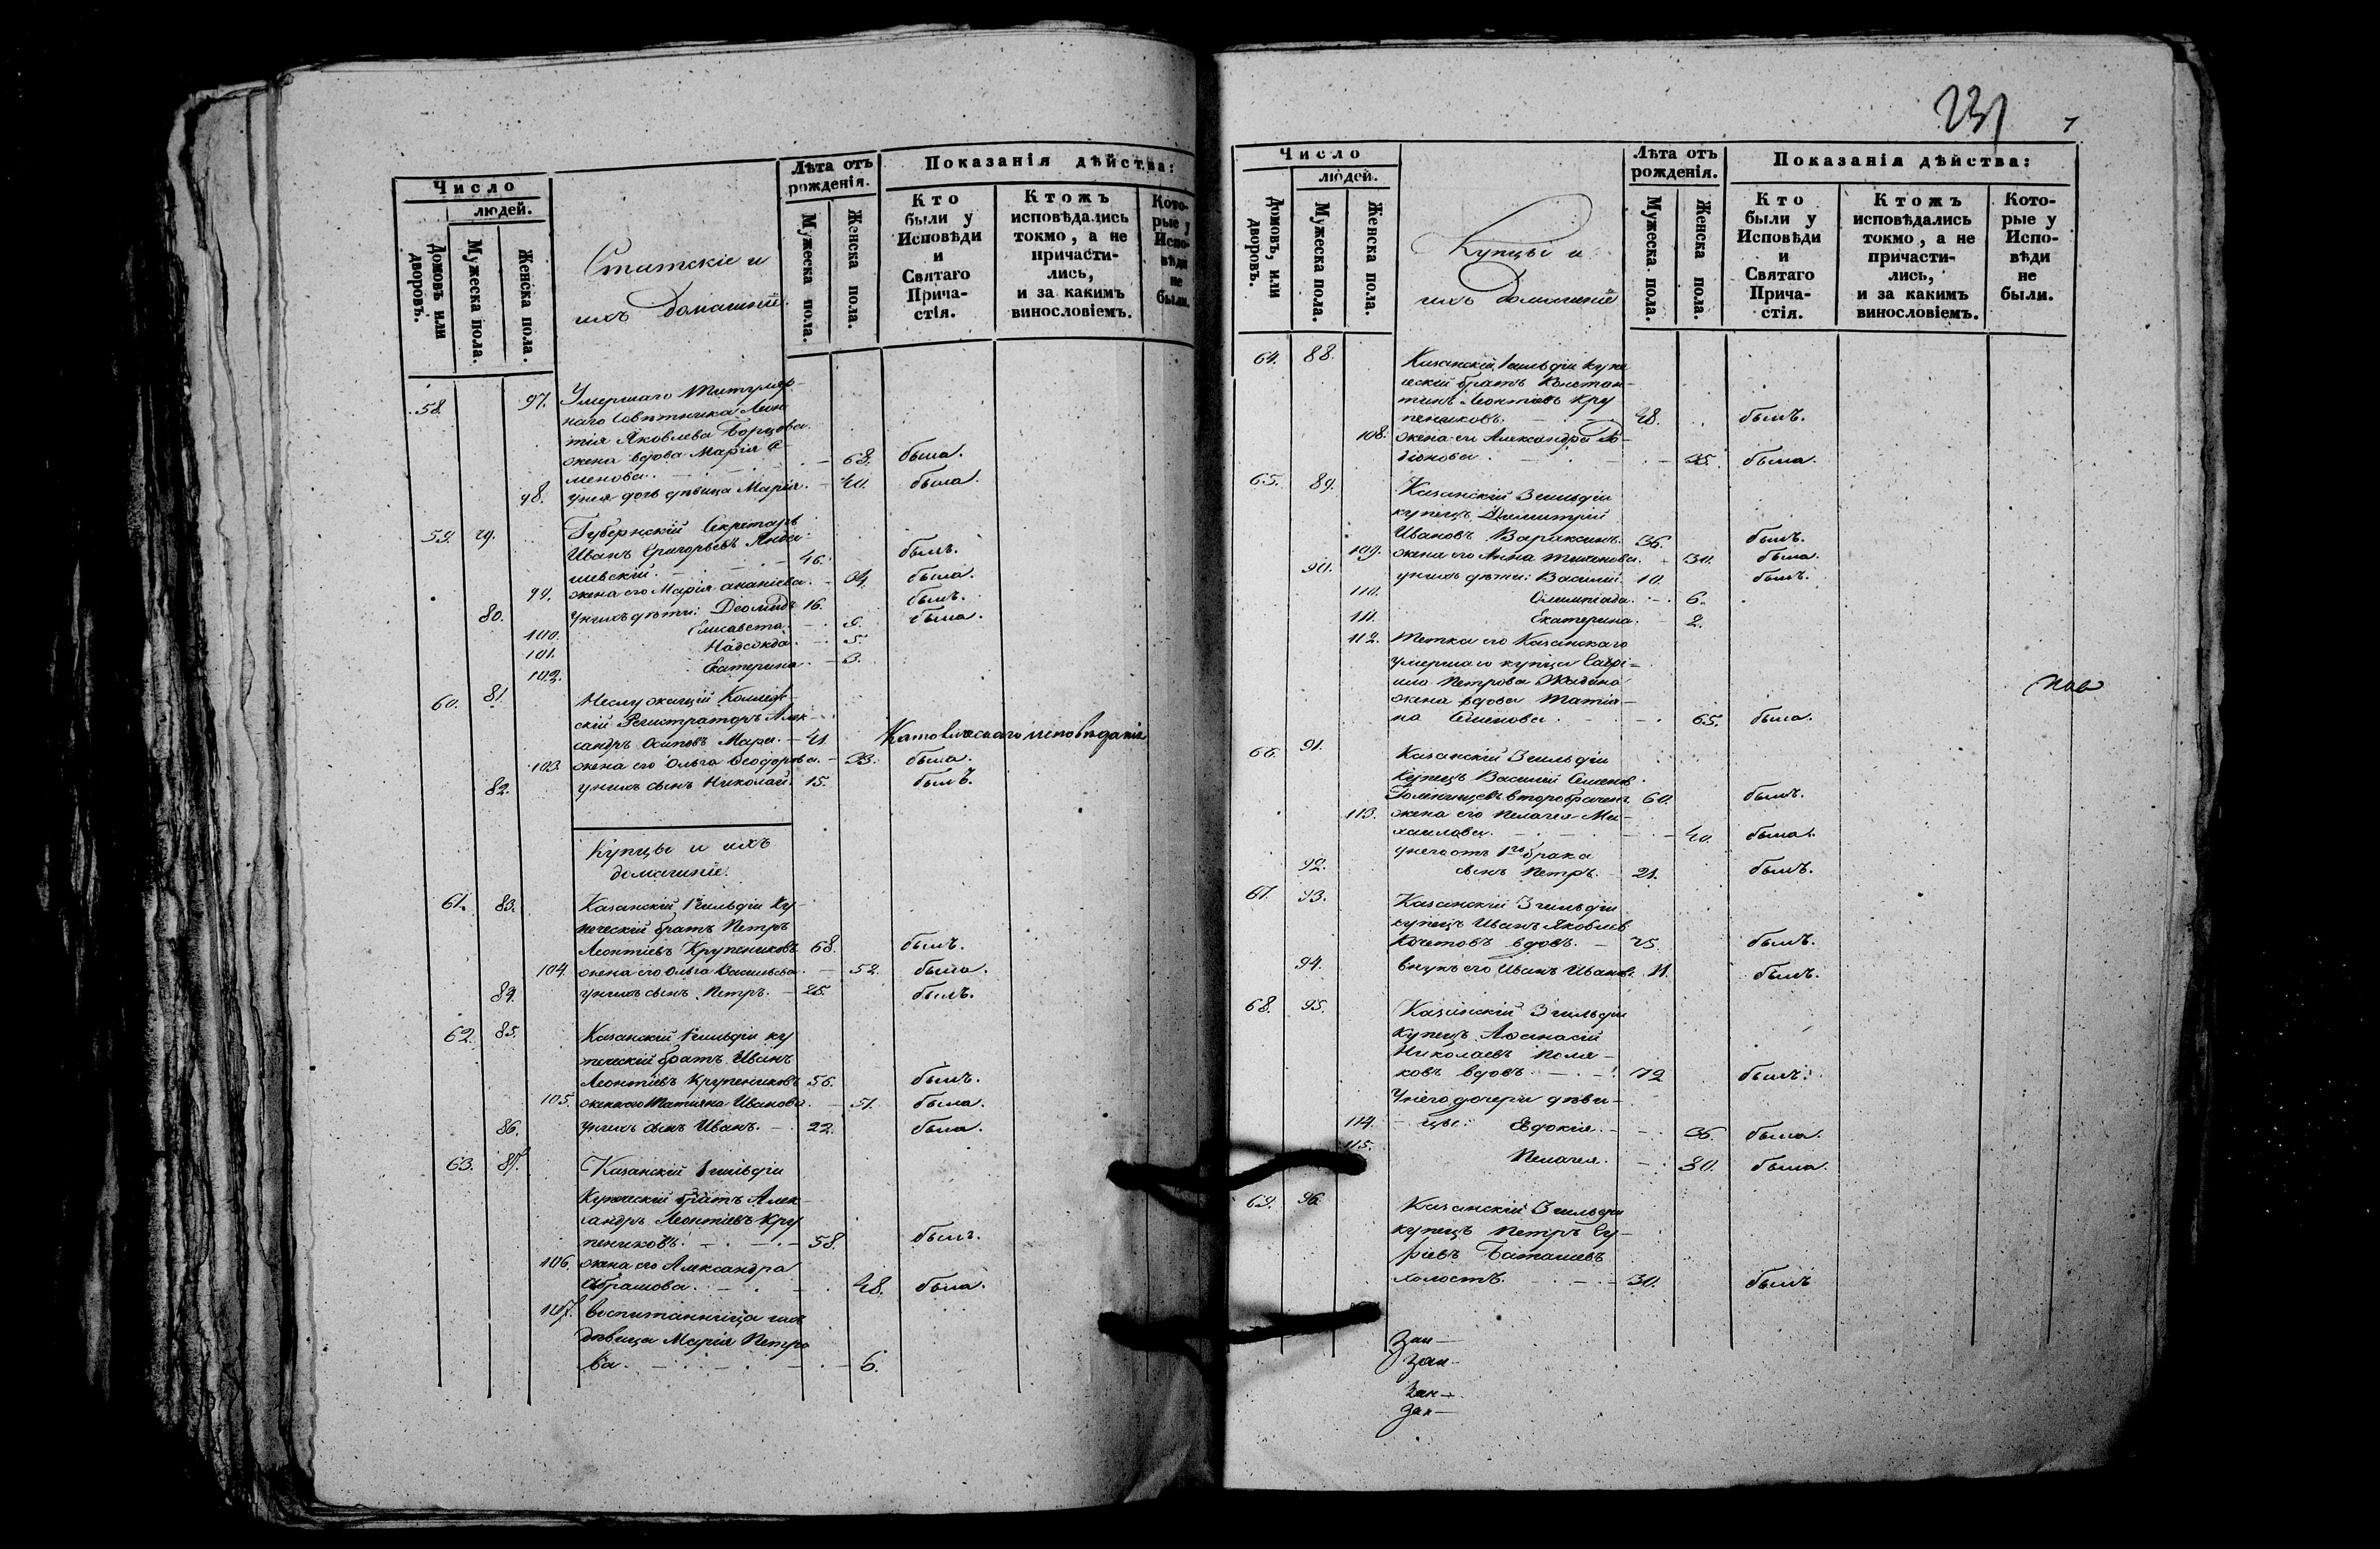 Число
людей.
Домовъ или дворовъ.
Мужеска пола.
Женска пола.
Статскіе и
ихъ Домашніе
Лѣта отъ рожденія.
Мужеска пола.
Женска пола.
Показанія дѣйства:
Кто были у Исповѣди и Святаго Прича- стія.
Ктожъ исповѣдались токмо, а не причасти- лись, и за какимъ винословіемъ.
Кото- рые у Испо- вѣди не были.
58. 97. Умершаго Титуляр-
наго Совѣтника Леон
тія Яковлева
жена вдова Марія Се-
менова. 63. была.
98. у нея дочь дѣвица Марія. 40. была.
59. 79. Губернскій Секретарь
Иванъ Григорьевъ
46. былъ.
99. жена его Марія Ананіева. 34. была.
80. у нихъ дѣти: Деомидъ 16. былъ.
100. Елисавета. 9. была.
101. Надежда. 5
102. Екатерина. 3.
60. 81. Неслужащій Коллеж-
скій Регистраторъ Алек-
сандръ Осиповъ 41. Католическаго исповѣданія
103. жена его Ольга Ѳеодорова. 33. была.
82. у нихъ сынъ Николай. 15. былъ.
Купцы и ихъ
домашніе.
61. 83. Казанскій 1 гильдіи Ку-
печескій братъ Петръ
Леонтіевъ Крупениковъ 68. былъ.
104. жена его Ольга Васильева. 52. была.
84. у нихъ сынъ Петръ. 25. былъ.
62. 85. Казанскій 1 гильдіи ку
печескій братъ Иванъ
Леонтіевъ Крупениковъ 56. былъ.
105. жена его Татіяна Иванова. 51. была.
86. у нихъ сынъ Иванъ. 22. была.
63. 87. Казанскій 1 гильдіи
Купеческій братъ Алек
сандръ Леонтіевъ Кру
пениковъ. 58. былъ.
106. жена его Александра
Абрамова. 48. была.
107. воспитанница
дѣвица Марія Петро
ва. 6.
231 7
Число
людей.
Домовъ, или дворовъ.
Мужеска пола.
Женска пола.
Купцы и
ихъ Домашніе
Лѣта отъ рожденія.
Мужеска пола.
Женска пола.
Показанія дѣйства:
Кто были у Исповѣди и Святаго Прича- стія.
Ктожъ исповѣдались токмо, а не причасти- лись, и за какимъ винословіемъ.
Кото- рые у Испо- вѣди не были.
64. 88. Казанскій 1 гильдіи купе
ческій братъ Констан-
тинъ Леонтіевъ Кру
пениковъ. 48. былъ.
108. жена его Александра Ро-
діонова. 35. была.
65. 89. Казанскій 3 гильдіи
купецъ Димитрій
Ивановъ Вараксинъ. 36. былъ.
109. жена его Анна Тихонова. 30. была.
90. у нихъ дѣти: Василій 10. былъ.
110. Олимпіада. 6.
111. Екатерина. 2.
112. Тетка его Казанскаго
умершаго купца Гаврі-
ила Петрова Жадина
жена вдова Татія-
на Семенова. 65. была.
66. 91. Казанскій 3 гильдіи
Купецъ Василій Семеновъ
Голенищевъ второбрачен. 60. былъ.
113. жена его Пелагея Ми-
хаилова. 40. была.
у него отъ 1го брака
92. сынъ Петръ. 21. былъ.
67. 93. Казанскій 3 гильдіи
купецъ Иванъ Яковлев
Кочетовъ вдовъ. 75. былъ.
94. внукъ его Иванъ Иванов. 11. былъ.
68. 95. Казанскій 3 гильдіи
Купецъ Аѳанасій
Николаевъ Поля-
ковъ вдовъ. 72 былъ.
У него дочери дѣви-
114. цы: Евдокія. 36. была.
115. Пелагея. 30. была.
69. 96. Казанскій 3 гильдіи
купецъ Петръ Гу-
рьевъ Баташевъ
холостъ. 30. былъ